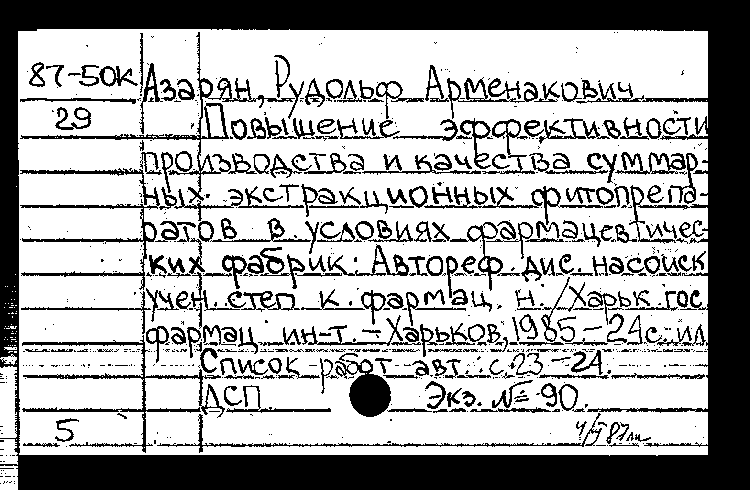 87-50К Азарян, Рудольф Арменакович
29 Повышение эффективности
производства и качества суммар-
ных экстракционных фитопрепа-
ратов в условиях фармацевтичес-
ких фабрик: Автореф. дис. на соиск
учен. степ к. фармац. н. / Харьк. гос
фармац ин-т. - Харьков, 1985. - 24 с. ил
Список работ авт.: с. 23-24.
ДСП. Экз. № 90.
5